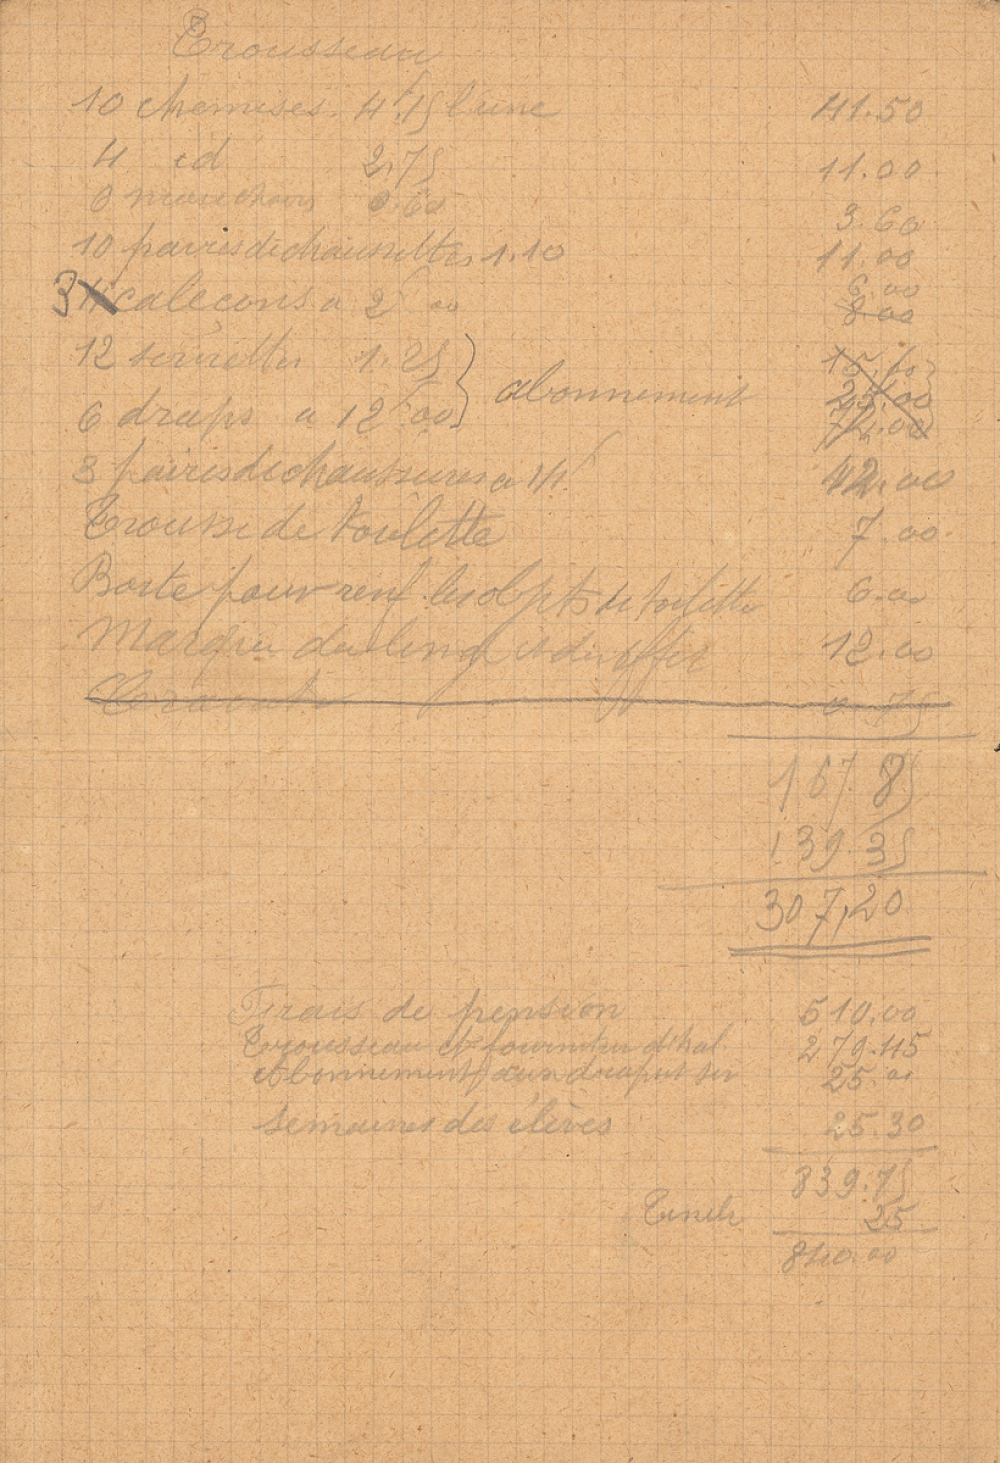 Trousseau
10 chemises. 4f.15 l'une 41.50
4 id 2.75 11.00
6 mouchoirs 0.60 3.60
10 paires de chaussettes 1.10 11.00
3 caleçons a 2f 00 6.00
8.00
12 serviettes 1.25 15.00
abonnement 25.00
6 draps a 12f 00 72.00
3 paires de chaussures a 14f 42.00
Trousse de toilette 7.00
Boite pour renf. les objets de toilette 6.00
Marque du linge et des effets 12.00
Cravate 0.75
167.85
139.35
307,20
Frais de pension 510.00
Trousseau et fournitur d'hab. 279.45
Abonnement aux draps et ser 25.00
Semaines des élèves 25.30
839.75
Timb 25
840.00